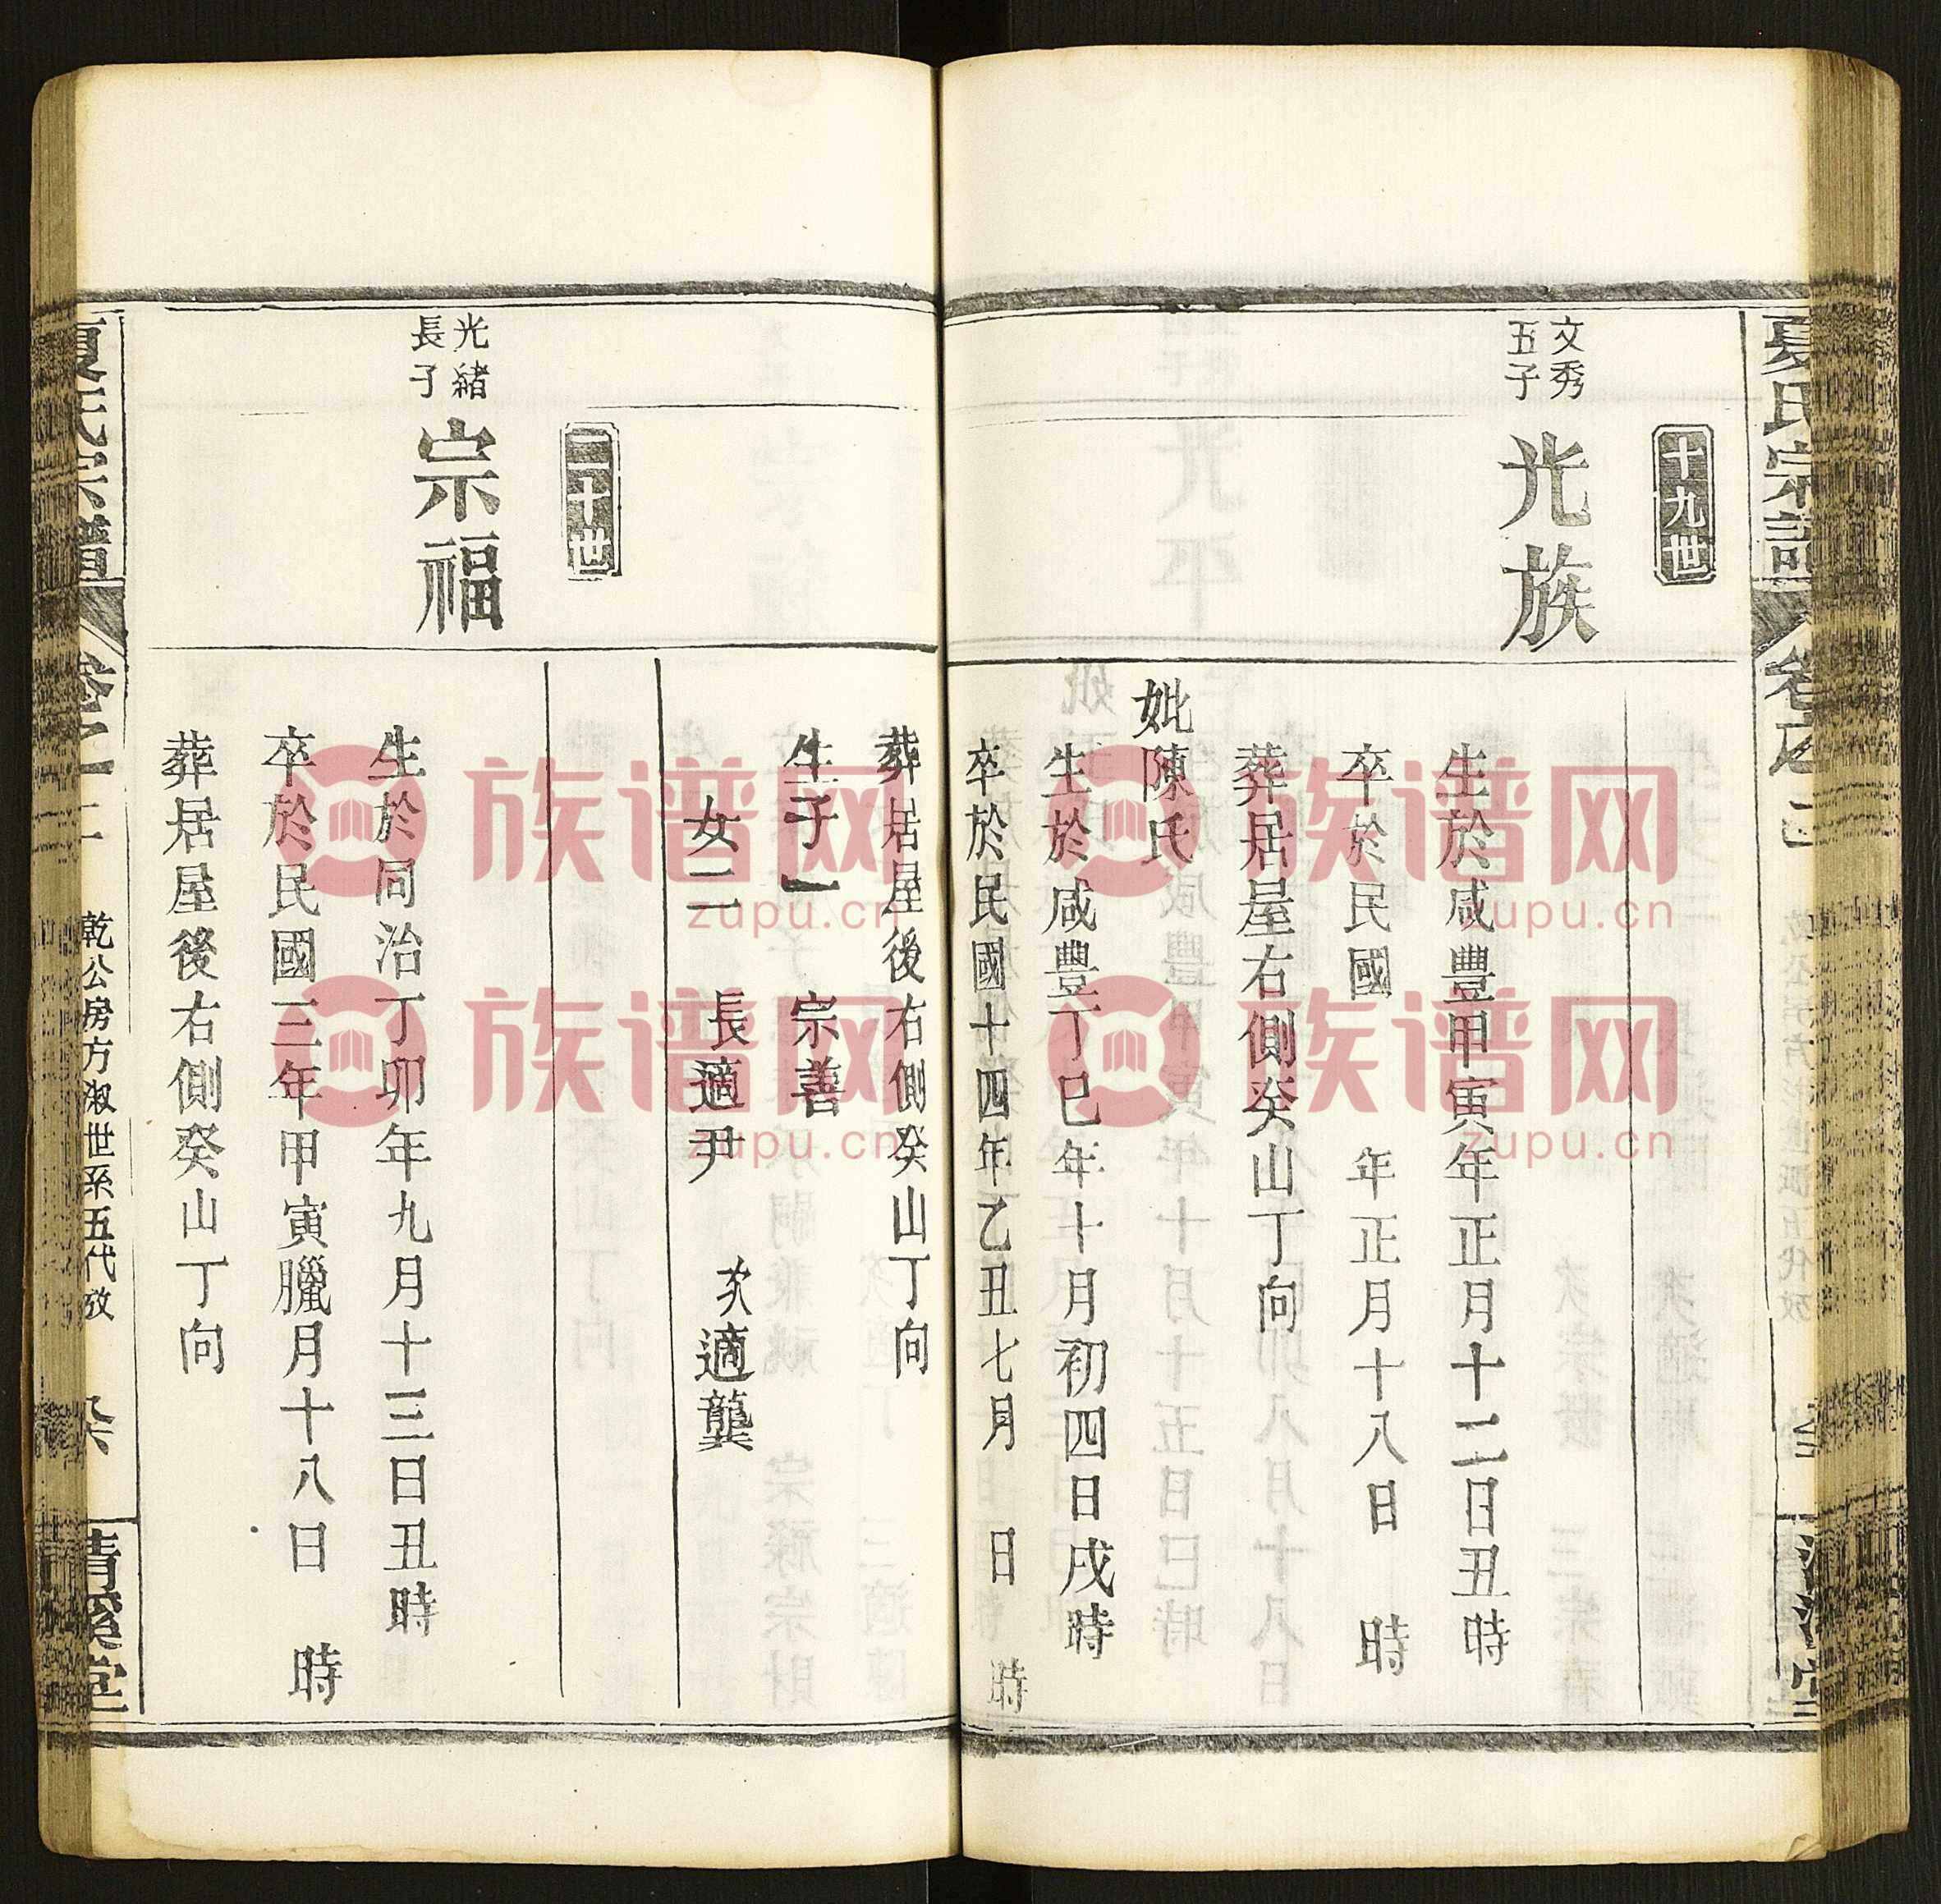 夏氏宗譜
卷之
十九世
文秀
五子
光族
生於咸豐甲寅年正月十二日丑時
卒於民國 年正月十八日 時
葬居屋右側癸山丁向
妣陳氏
生於咸豐丁巳年十月初四日戌時
卒於民國十四年乙丑七月 日 時
葬居屋後右側癸山丁向
生子一 宗善
女二 長適尹 次適龔
二十世
光緒
長子
宗福
生於同治丁卯年九月十三日丑時
卒於民國三年甲寅臘月十八日 時
葬居屋後右側癸山丁向
夏氏宗譜
卷之
乾公房方淑世系五代攷
清溪堂
族谱网
zupu.cn
族谱网
zupu.cn
族谱网
zupu.cn
族谱网
zupu.cn